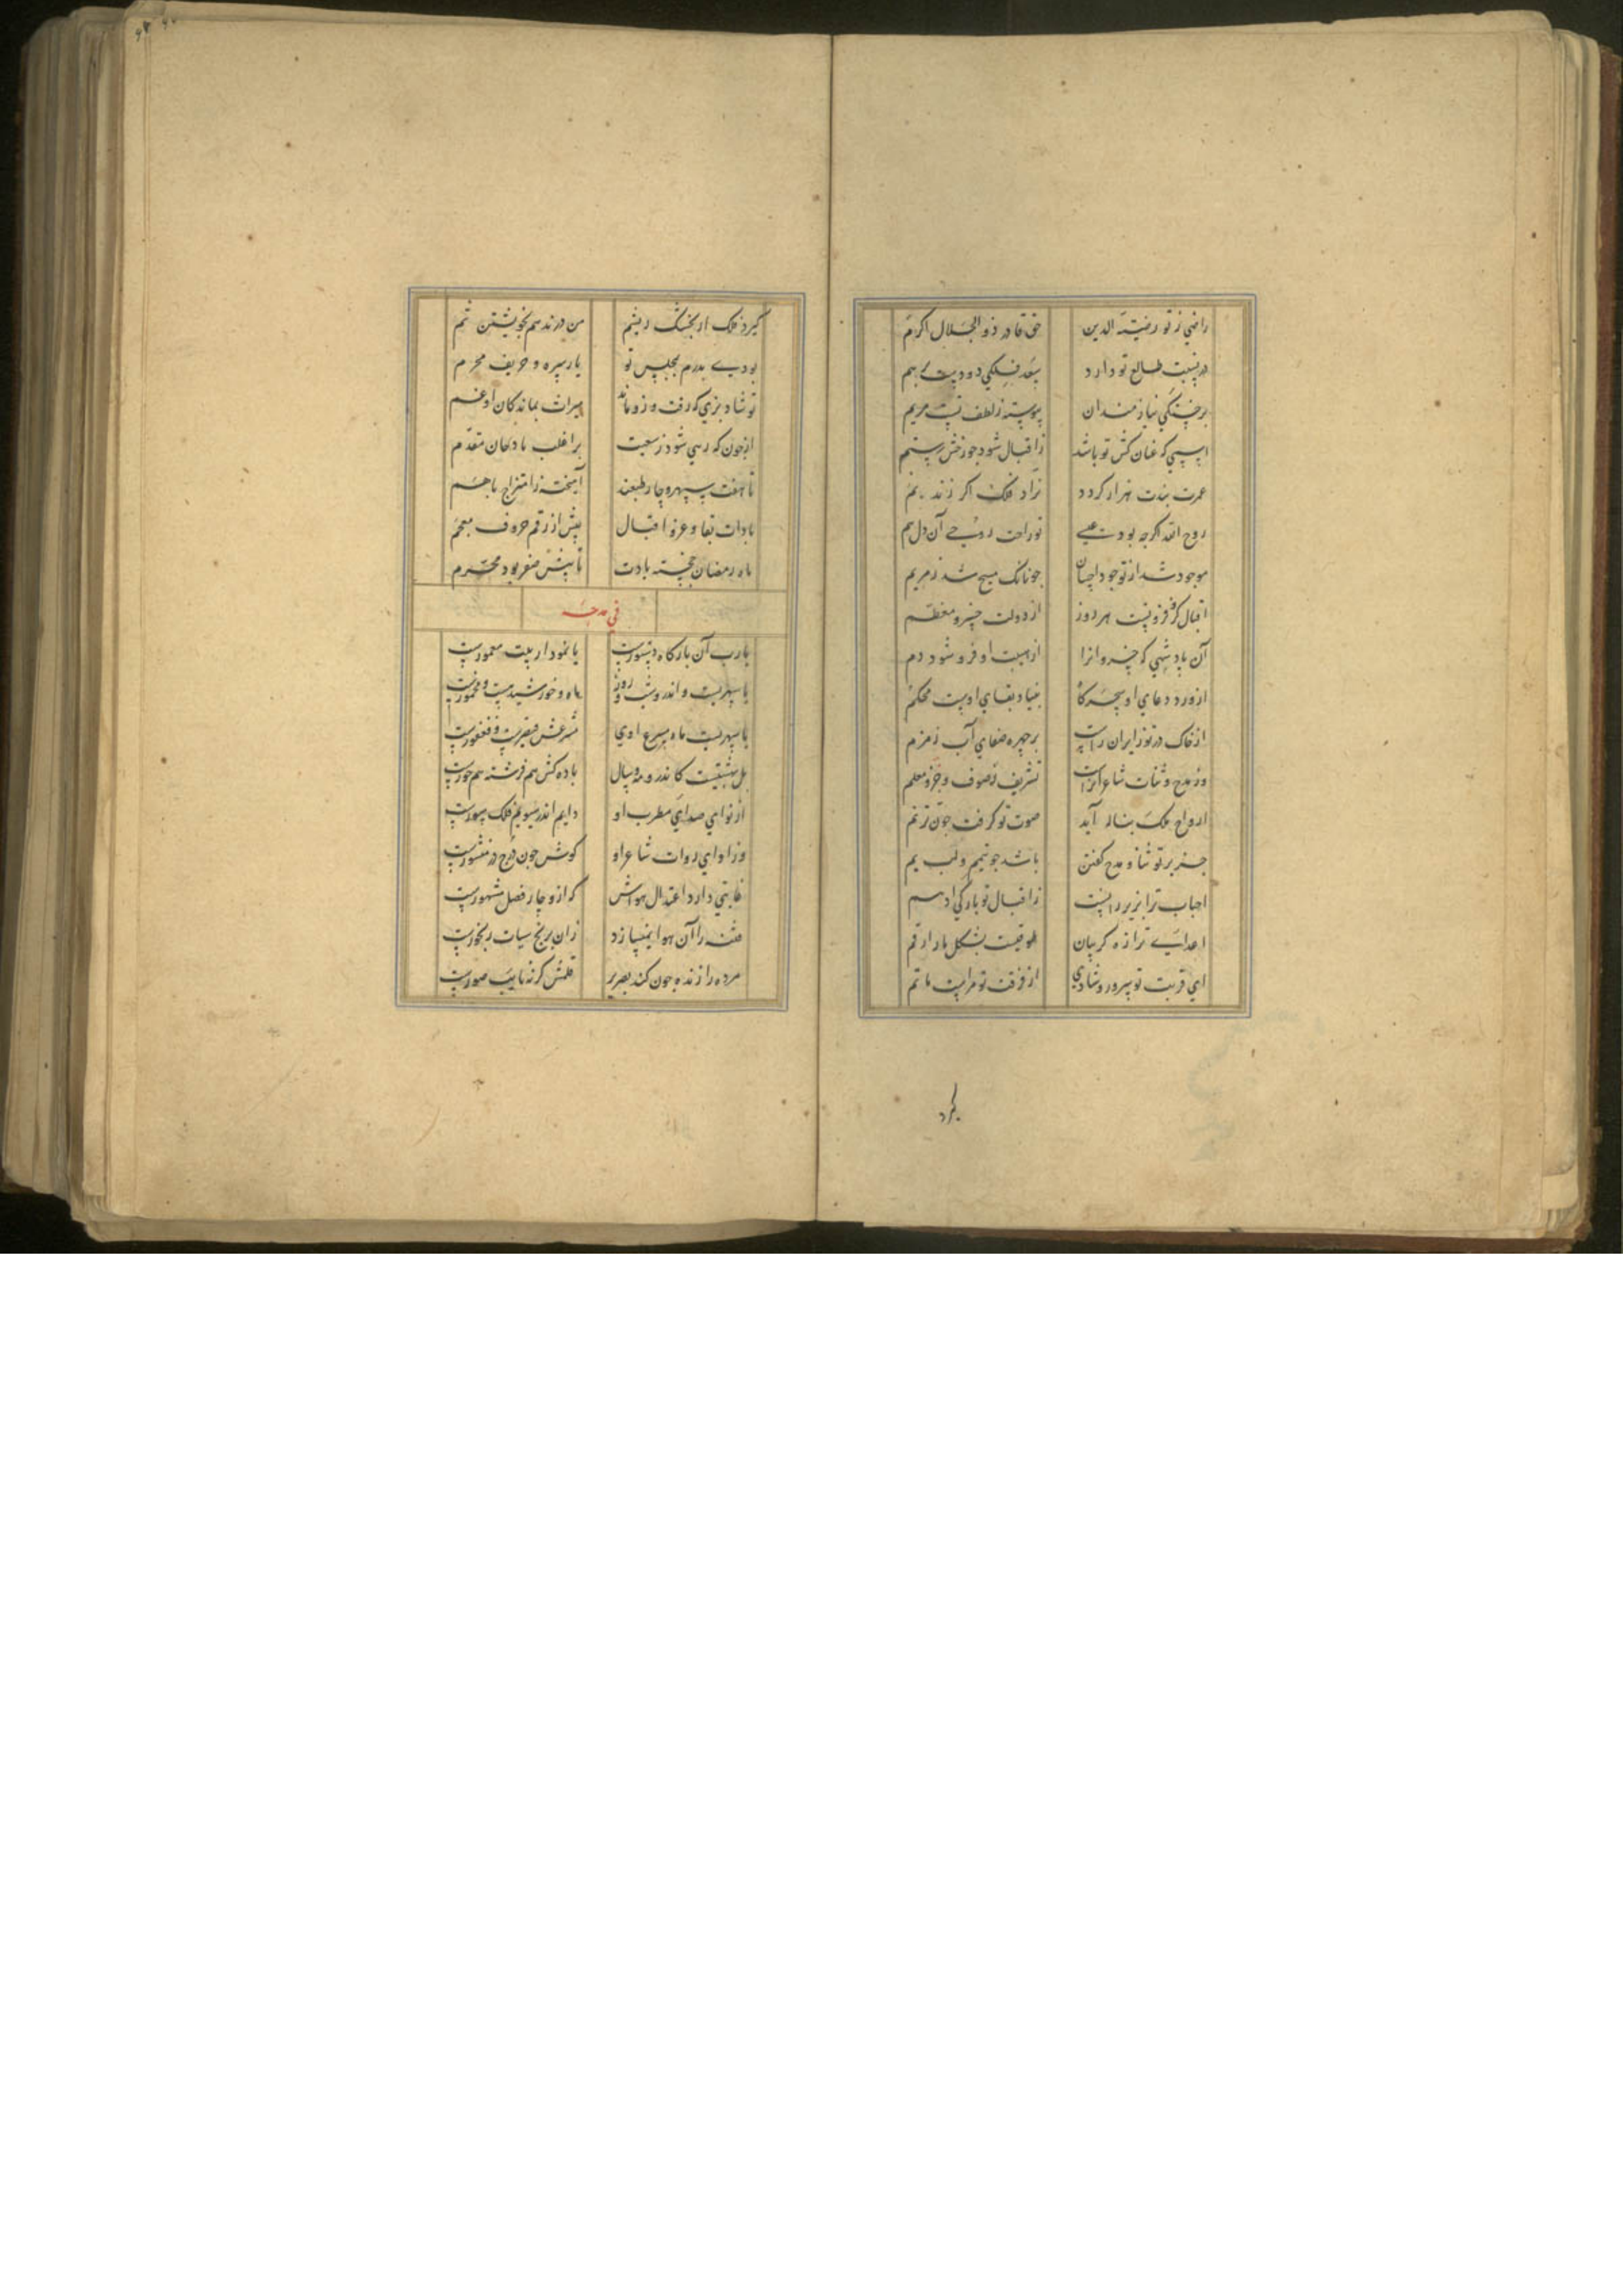 راضی ز تو رضیّة الدین حق قادر ذو الجلال اکرم
در نسبت طالع تو دارد سعد فلکی دو دست بر هم
بر خستگی نیازمندان پیوسته ز لطف تست مرهم
اسپی که عنان کش تو باشد ز اقبال شود چو رخش رستم
عمرت بمدت هزار کردد نراد فلک اکر زند بم
روح الله اکرچه بود عیسی
موجود شد از تو جود و احسان جونانک مسیح شد ز مریم
اقبال کرو فزونست هر روز از دولت خسرو معظم
آن پادشهی که خسروانرا از هیبت او فرو شود دم
از ورد دعای او سحرکاه بنیاد بقای اوست محکم
از خاک در تو زایران راست بر چهره صفای آب زمزم
وز مدح و ثنات شاعرانراست تشریف ز صوف و خز و معلم
ارواح ملک بناله آید صوت تو کرفت چون ترنم
جز بر تو ثنا و مدح کفتن باشد چو تیمم و لب یم
احباب ترا بزیر رانست ز اقبال تو بارکی ادهم
اعدای ترا زه کریبان طوقیست بشکل مار ارقم
ای قربت تو سرور و شادی از فرقت تو مراست ماتم
کیرد
کیرد فلک ار بخشک ریشم من در ندهم بخویشتن نم
بودی پدرم بمجلس تو یار سره و حریف محرم
تو شاد بزی که رفت و زو ماند میراث بماندکان او غم
ارجون که رسی شود ز سعیت بر اغلب مادحان مقدم
تا هفت سپهر و چار طبعند آمیخته ز امتزاج با هم
بادات بقا و عز و اقبال بیش از رقم حروف معجم
ماه رمضان خجسته بادت تا پیش صفر بود محرم
فی مدحه
یا رب آن بارکاه دستورست یا نمودار بیت معمورست
یا سپهرست و اندرو شب و روز ماه و خورشید مست و مخمورست
بل بهشتیست کاندرو مه و سال باده کش هم فرشته هم حورست
از نوای صدای مطرب او دایم اندر سیوم فلک سورست
وز اوای روات شاعر او کوش چون درج در منثورست
غایتی دارد اعتدال هواش که ازو چار فصل مشهورست
فتنه را آن هوا نمیسازد زان برنج سبات رنجورست
مرده را زنده چون کند بصریر قلمش کر نه نایب صورست